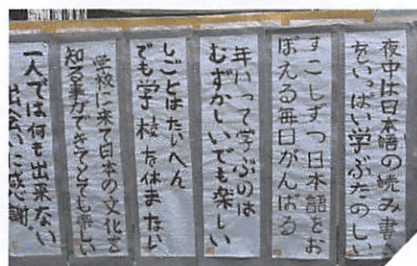 夜中は日本語の読み書き
をいっぱい学ぶたのしい
すこしずつ日本語をお
ぼえる毎日がんばる
年いって学ぶのは
むずかしいでも楽しい
しごとはたいへん
でも学校を休まない
学校に来て日本の文化を
知る事ができてとても楽しい
一人では何も出来ない
出会いに感謝。